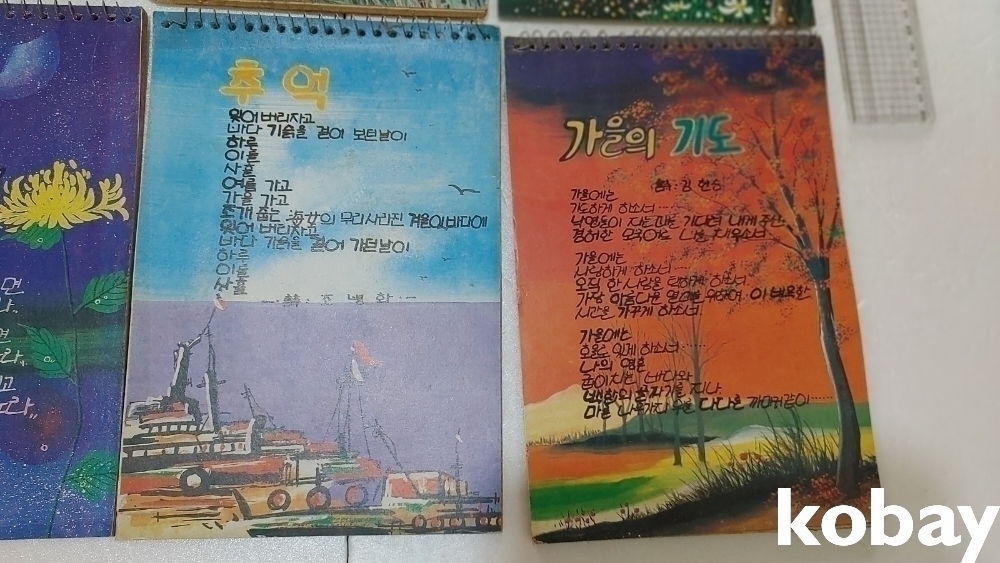 면
나.
면
라,
고
노라,,
추억
잊어버리자고
바다 기슭을 걸어 보던날이
하루
이틀
사흘
여름 가고
가을 가고
조개 줍는 海女의 무리사라진 겨울이바다에
잊어버리자고
바다 기슭을 걸어 가던날이
하루
이틀
사흘
詩. 조병화
가을의 기도
詩. 김현승
가을에는
기도하게 하소서……
낙엽들이 지는때를 기다려 내게 주신
겸허한 모국어로 나를 채우소서.
가을에는
사랑하게 하소서……
오직 한 사람을 택하게 하소서.
가장 아름다운 열매를 위하여 이 비옥한
시간을 가꾸게 하소서.
가을에는
호올로 있게 하소서……
나의 영혼
굽이치는 바다와
백합의 골짜기를 지나
마른 나뭇가지 위에 다다른 까마귀같이……
kobay